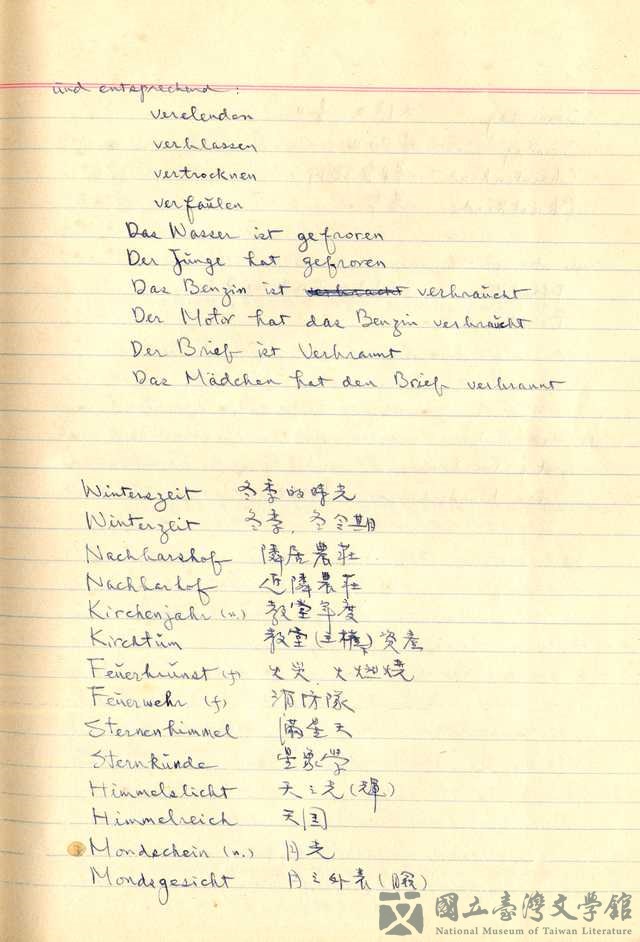 und entsprechend:
verelenden
verblassen
vertrocknen
verfaulen
Das Wasser ist gefroren
Der Junge hat gefroren
Das Benzin ist verbraucht
Der Motor hat das Benzin verbraucht
Der Brief ist Verbrannt
Das Mädchen hat den Brief verbrannt
Winterszeit 冬季的時光
Winterzeit 冬季、冬令期
Nachbarshof 隣居農莊
Nachbarhof 近隣農莊
Kirchenjahr (n.) 教堂年度
Kirchtum 教堂(主権)資産
Feuerbrunst (f) 火災、火燃燒
Feuerwehr (f) 消防隊
Sternenhimmel 滿星天
Sternkunde 星象學
Himmelslicht 天之光(輝)
Himmelreich 天国
Mondschein (n.) 月光
Mondsgesicht 月之外表(臉)
國立臺灣文學館
National Museum of Taiwan Literature